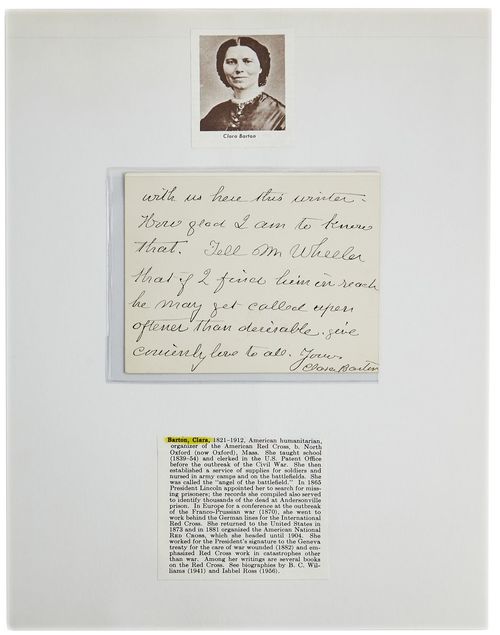 Clara Barton
with us here this winter.
How glad I am to know
that. Tell Mr Wheeler
that if I find him in reach
he may get called upon
oftener than desirable. give
love to all. Yours
Clara Barton
Barton, Clara, 1821–1912, American humanitarian,
organizer of the American Red Cross, b. North
Oxford (now Oxford), Mass. She taught school
(1839–54) and clerked in the U.S. Patent Office
before the outbreak of the Civil War. She then
established a service of supplies for soldiers and
nursed in army camps and on the battlefields. She
was called the "angel of the battlefield." In 1865
President Lincoln appointed her to search for miss-
ing prisoners; the records she compiled also served
to identify thousands of the dead at Andersonville
prison. In Europe for a conference at the outbreak
of the Franco-Prussian war (1870), she went to
work behind the German lines for the International
Red Cross. She returned to the United States in
1873 and in 1881 organized the American National
RED CROSS, which she headed until 1904. She
worked for the President's signature to the Geneva
treaty for the care of war wounded (1882) and em-
phasized Red Cross work in catastrophes other
than war. Among her writings are several books
on the Red Cross. See biographies by B. C. Wil-
liams (1941) and Ishbel Ross (1956).